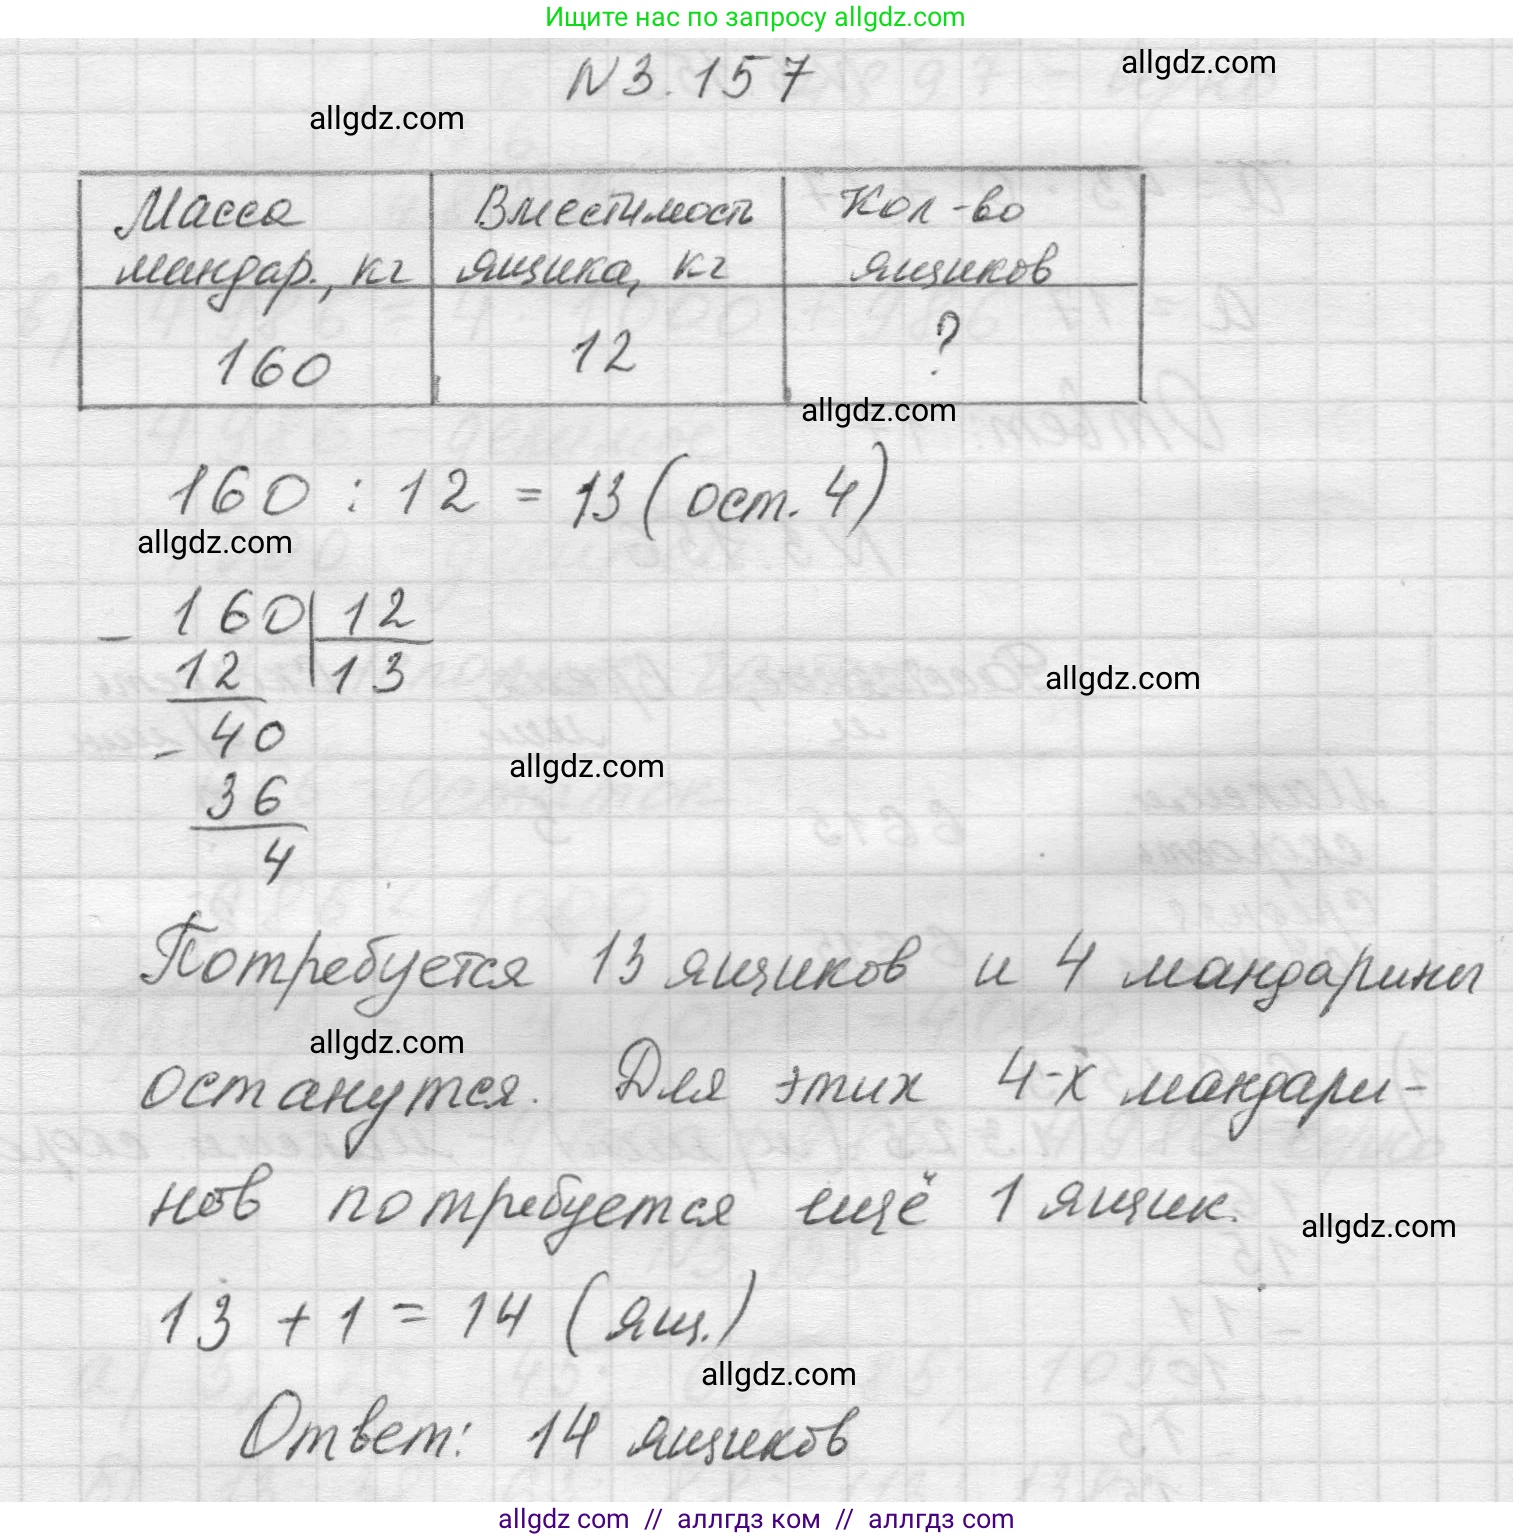 Ищите нас по запросу allgdz.com
N 3.157
allgdz.com
allgdz.com
Масса мандар., кг
Вместимость ящика, кг
Кол-во ящиков
160
12
?
allgdz.com
160 : 12 = 13 (ост. 4)
allgdz.com
- 160 | 12
12 | 13
allgdz.com
- 40
allgdz.com
36
4
Потребуется 13 ящиков и 4 мандарины
allgdz.com
останутся. Для этих 4-х мандари-
нов потребуется ещё 1 ящик.
allgdz.com
13 + 1 = 14 (ящ.)
allgdz.com
Ответ: 14 ящиков
allgdz com // аллгдз ком // аллгдз com